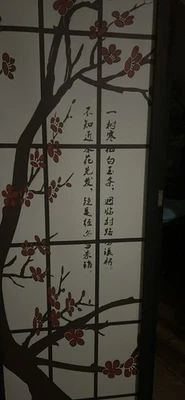 一树寒梅白玉条，迴临村路傍溪桥。
不知近水花先发，疑是经冬雪未销。